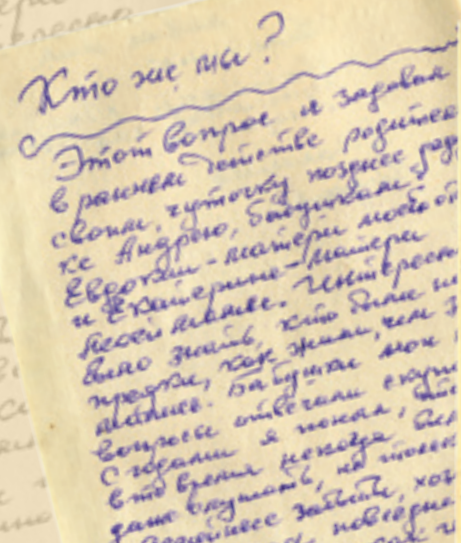 Кто же мы?
Этот вопрос я задавал
в раннем детстве родител
своим, чуточку позднее дед
ке Андрею, бабушкам:
Евдокии-матери моего от
и Екатерине-матери
моей мамы. Интересн
было знать, кто были
предки, как жили, чем з
Бабушки мои
вопросы отвечали скуп
С годами я понял, что
в то время некогда бы
даже слушать, не только
хот
повседнев